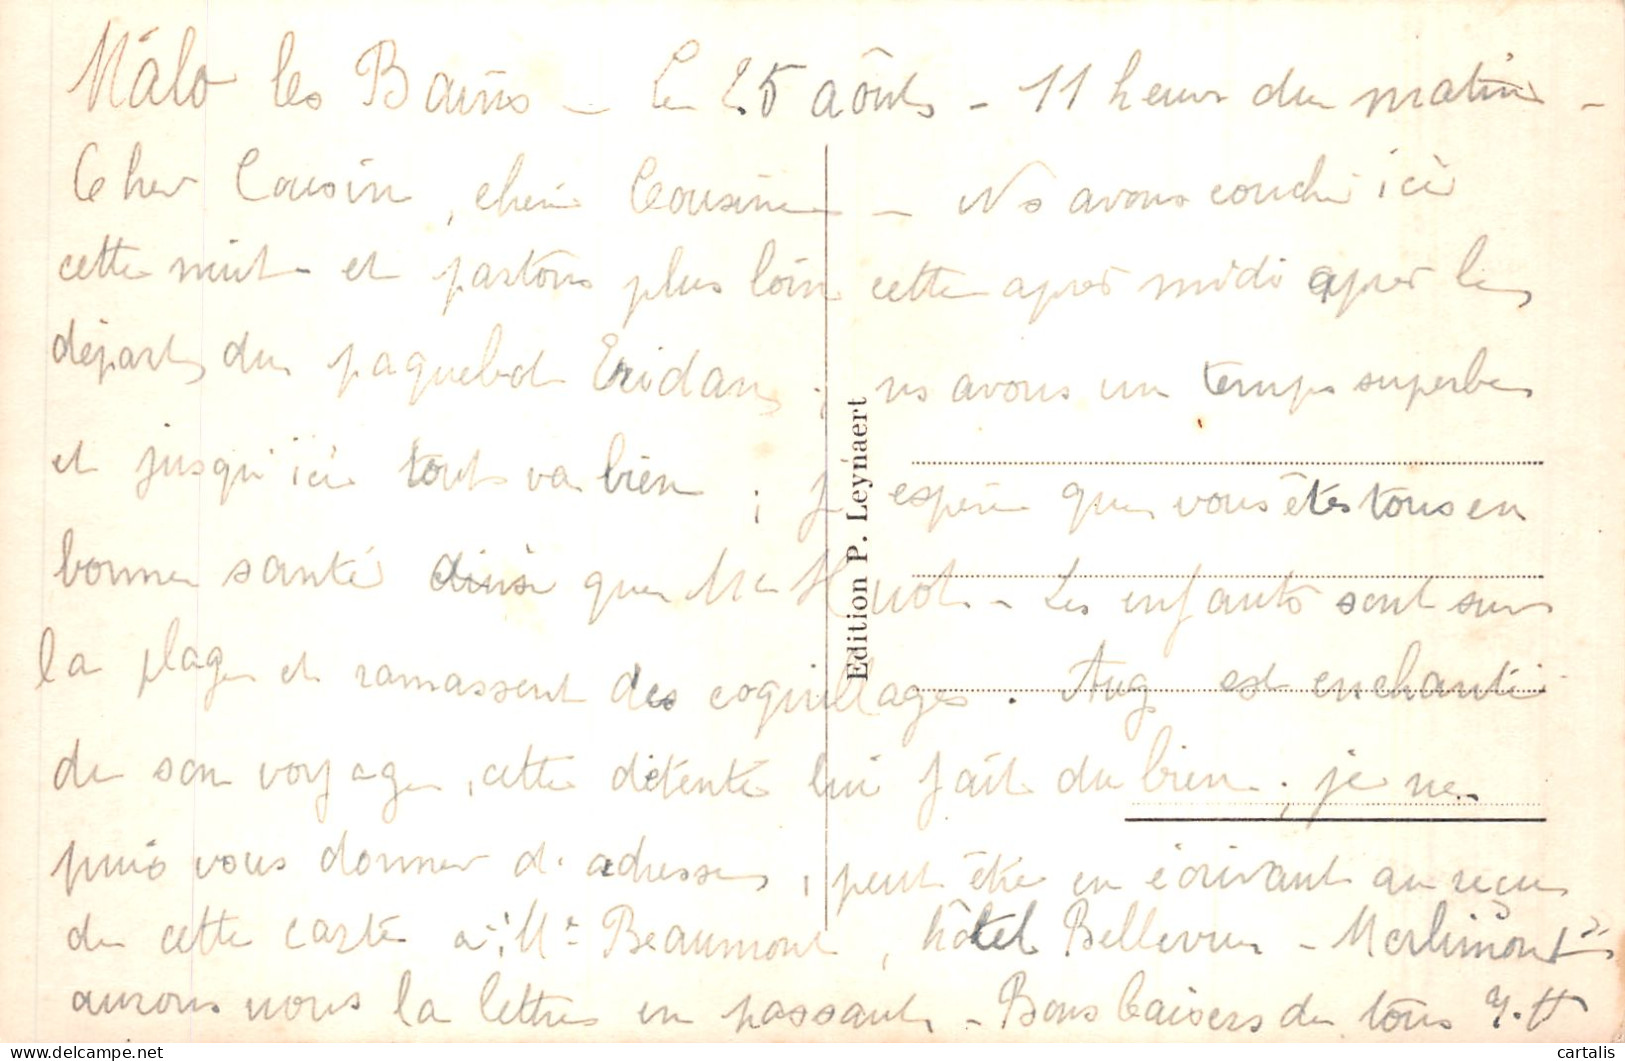 Málo les Bains – Le 25 aôuts – 11 heures du matin –
Cher Cousin, chère Cousine – Ns avons couché ici
cette nuit – et partons plus loin cette après midi après le
départ du paquebot Eridan ; ns avons un temps superbe
et jusqu'ici tout va bien ; j'espère que vous êtes tous en
bonne santé ainsi que Me Huot – Les enfants sont sur
la plage et ramassent des coquillages. Aug est enchanté
de son voyage, cette détente lui fait du bien ; je ne
puis vous donner d'adresse, peut être en écrivant au reçu
de cette carte à Mr Beaumont, hôtel Bellevue – Merlimont
aurons nous la lettre en passant – Bons baisers de tous Y. H
Edition P. Leynaert
cartalis